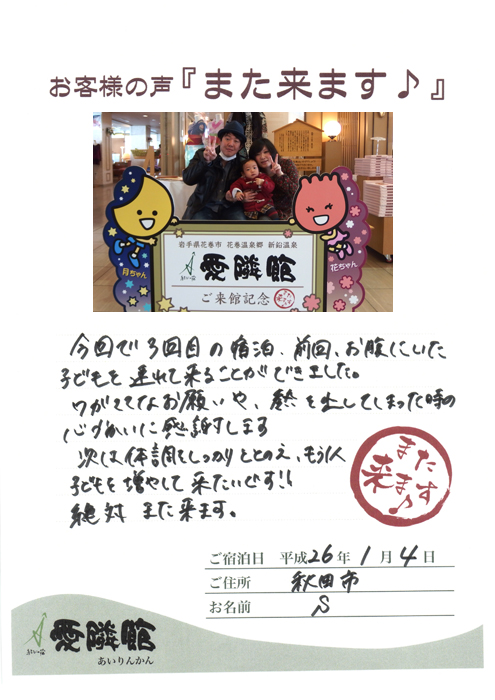 お客様の声『また来ます♪』
岩手県花巻市 花巻温泉郷 新鉛温泉
愛隣館
ご来館記念
月ちゃん
花ちゃん
今回で3回目の宿泊、前回、お腹にいた
子どもを連れて来ることができました。
ワガママなお願いや、熱を出してしまった時の
心づかいに感謝します
次は体調をしっかりととのえ、もう1人
子どもを増やして来たいです!!
絶対 また来ます。
また
来ます♪
ご宿泊日 平成26年1月4日
ご住所 秋田市
お名前 S
愛隣館
あいりんかん